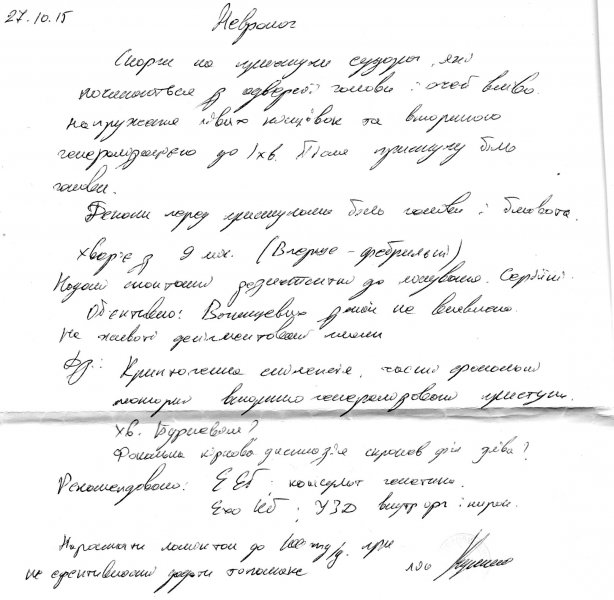 27.10.15 Невролог
Скарги на приступи судорог, які
починаються з адверсії голови і очей вліво.
напруження лівих кінцівок та вторинною
генералізацією до 1 хв. Після приступу біль
голови.
Деколи перед приступами біль голови і блювота.
Хворіє з 9 міс. (Вперше - фебрильні)
Надалі спонтанні резистентні до лікування. Серійні.
Обєктивно: Вогнищевих змін не виявлено.
На животі депігментовані плями
Дз: Криптогенна епілепсія, часті фокальні
моторні вторинно генералізовані приступи.
хв. Бурневіля?
Фокальна кіркова дисплазія скронев діл зліва?
Рекомендовано: ЕЕГ; консульт генетика.
Ехо КГ; УЗД внутр орг і нирок.
Наростати ламіктал до мг/д. при
не ефективності додати топамакс